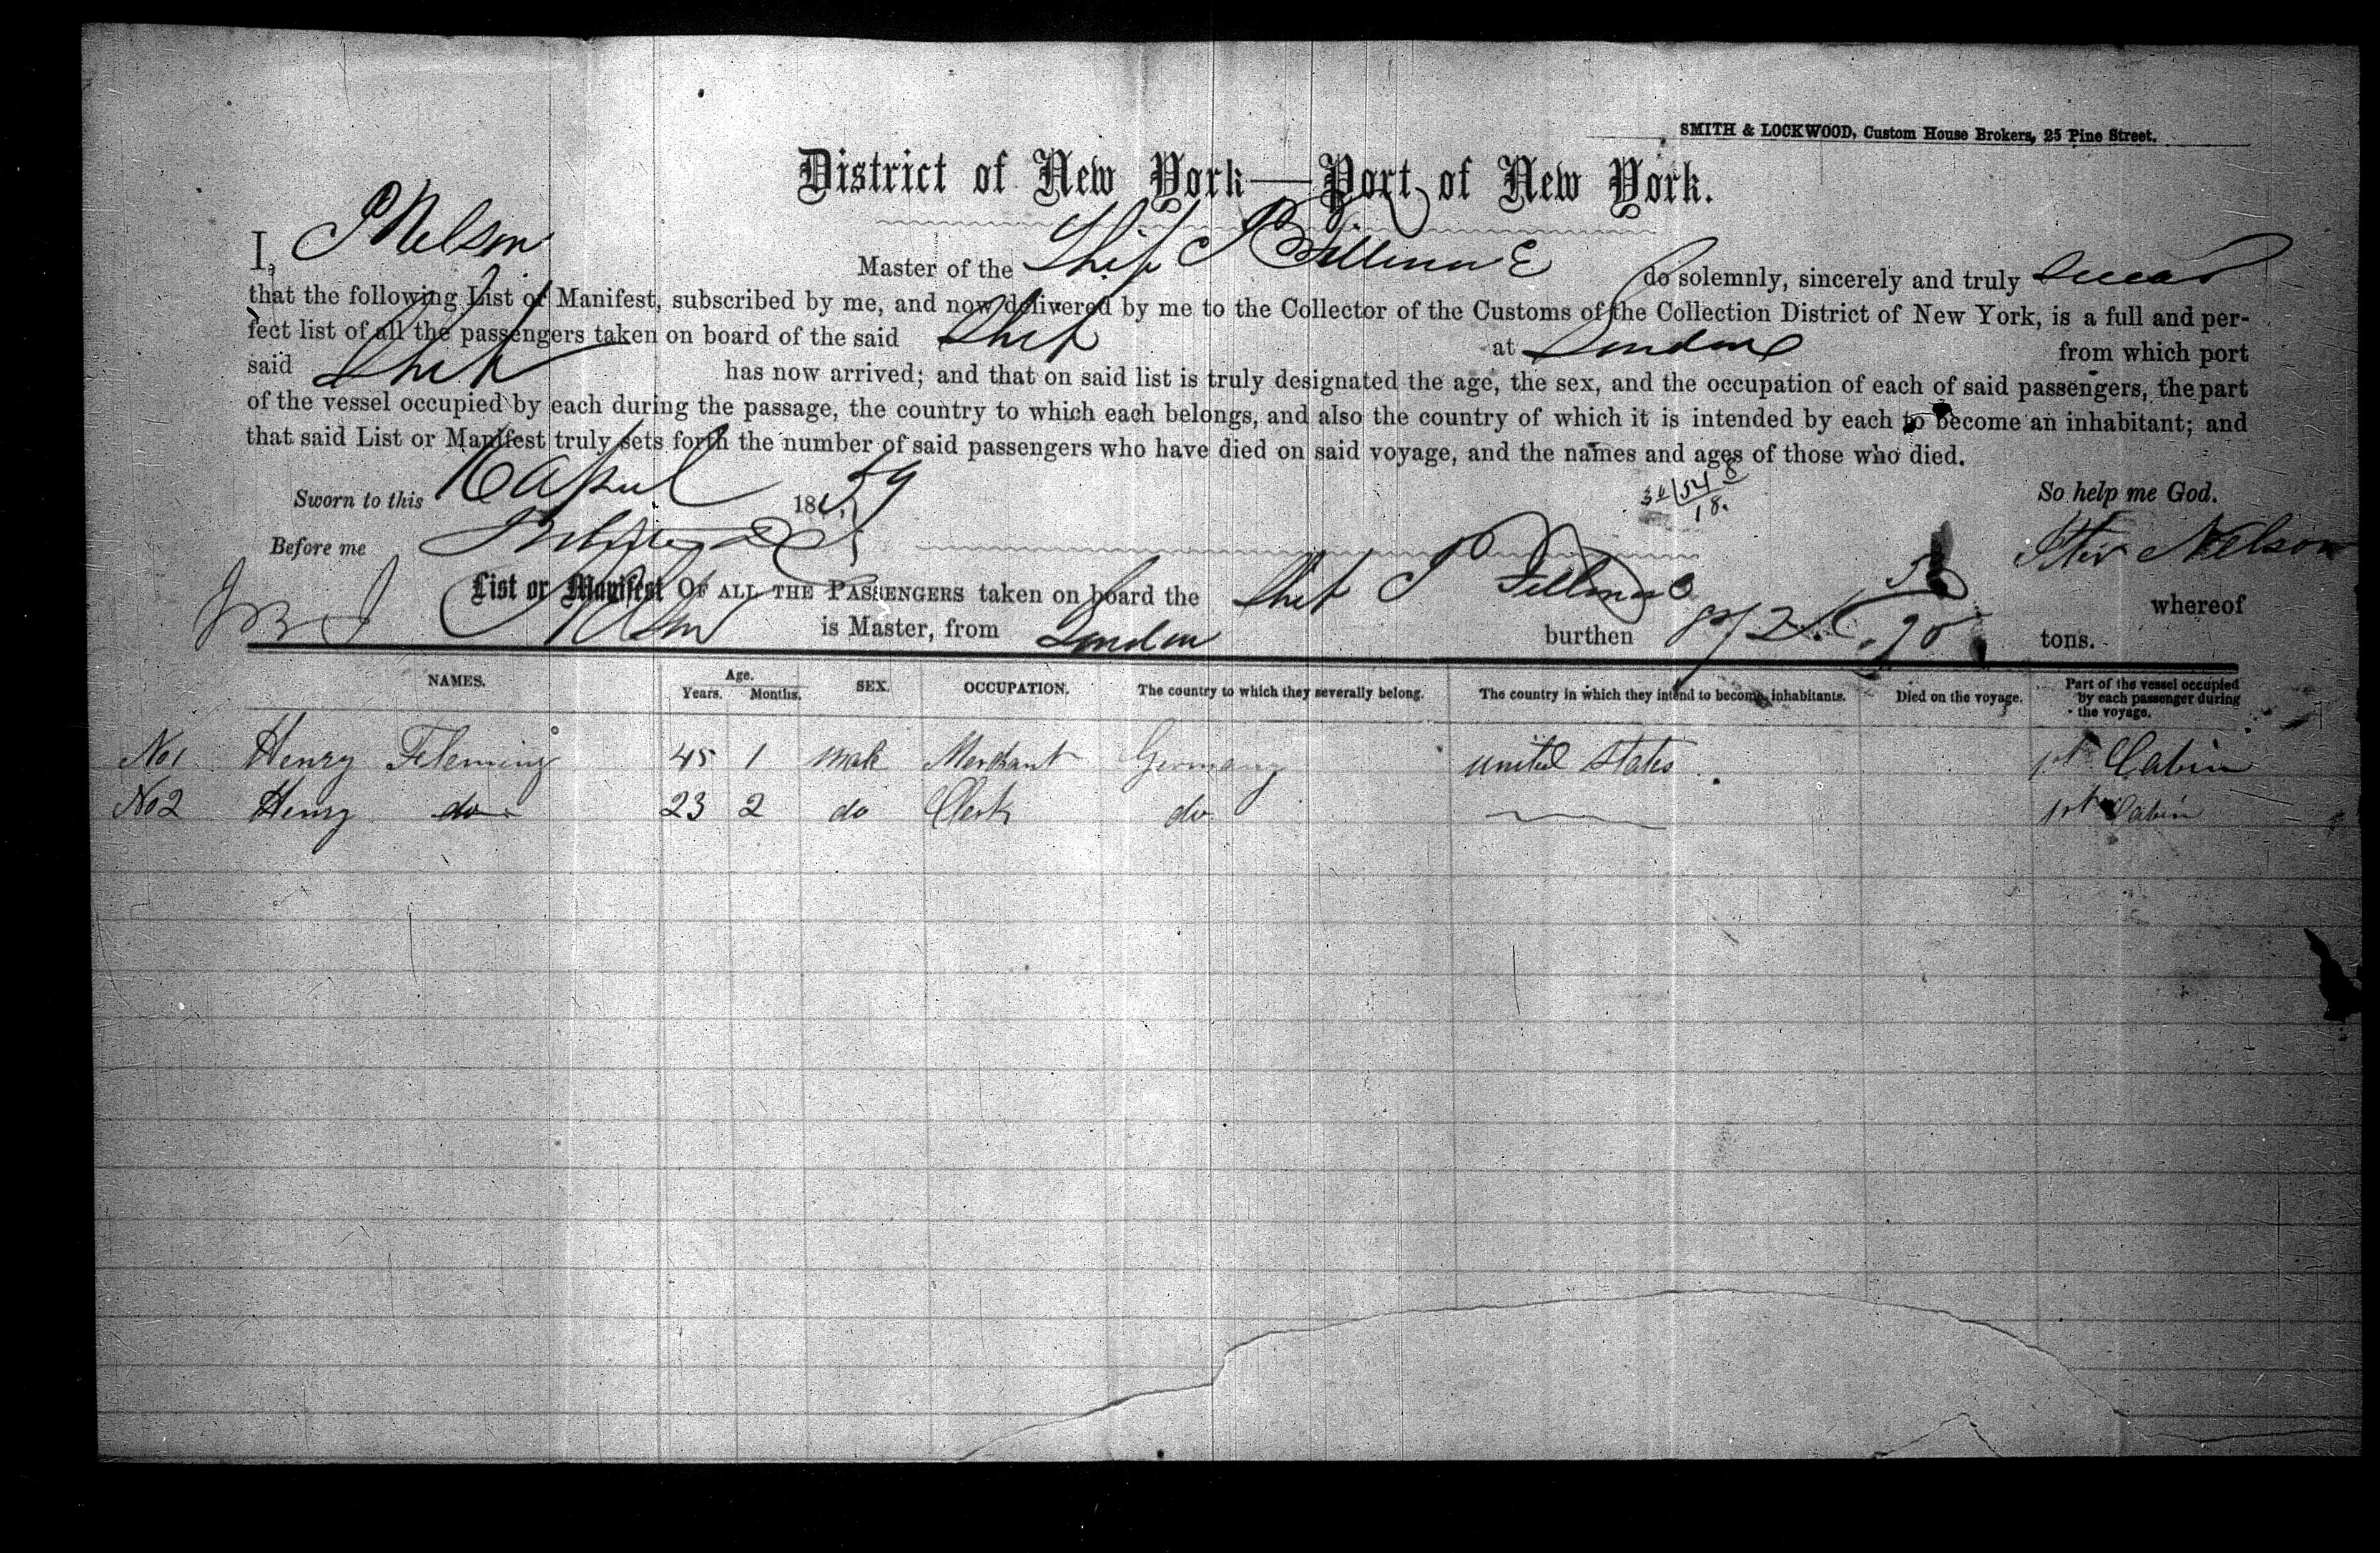 SMITH & LOCKWOOD, Custom House Brokers, 25 Pine Street.
District of New York—Port of New York.
I, P Nelson Master of the Ship do solemnly, sincerely and truly swear
that the following List or Manifest, subscribed by me, and now delivered by me to the Collector of the Customs of the Collection District of New York, is a full and per-
fect list of all the passengers taken on board of the said Ship at London from which port
said Ship has now arrived; and that on said list is truly designated the age, the sex, and the occupation of each of said passengers, the part
of the vessel occupied by each during the passage, the country to which each belongs, and also the country of which it is intended by each to become an inhabitant; and
that said List or Manifest truly sets forth the number of said passengers who have died on said voyage, and the names and ages of those who died.
Sworn to this April 1859 So help me God.
Before me Nelson
List or Manifest OF ALL THE PASSENGERS taken on board the Ship whereof
Nelson is Master, from London burthen tons.
NAMES. Age. Years. Months. SEX. OCCUPATION. The country to which they severally belong. The country in which they intend to become inhabitants. Died on the voyage. Part of the vessel occupied by each passenger during the voyage.
No 1 Henry Fleming 45 1 male Merchant Germany united States 1st Cabin
No 2 Henry do 23 2 do Clerk do 1st Cabin